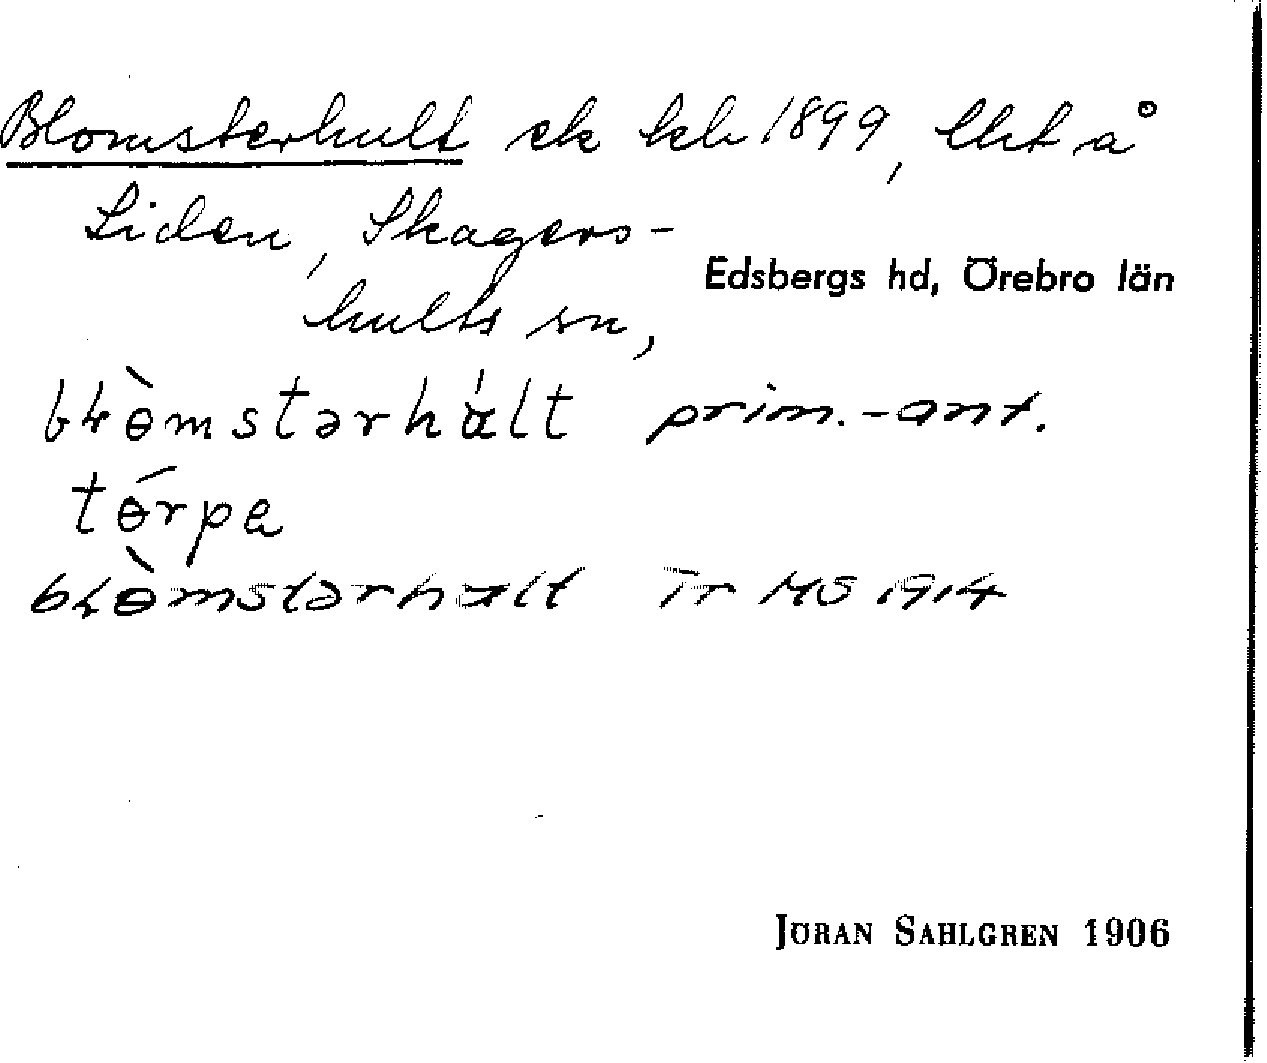 Blomsterhult ek kb 1899, lht å
Liden, Skagers-
hults sn,
Edsbergs hd, Örebro län
bɫɵ̀mstərhált prim.-ant.
tɵ́rpa
bɫɵ̀mstərhalt Tr MS 1914
JÖRAN SAHLGREN 1906